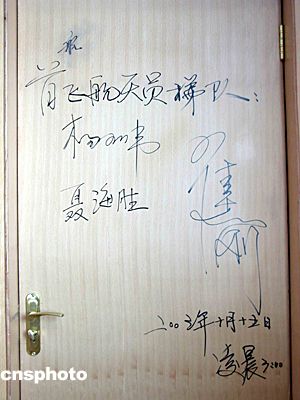 首飞航天员梯队：
杨利伟
翟志刚
聂海胜
二00三年十月十五日
凌晨
cnsphoto